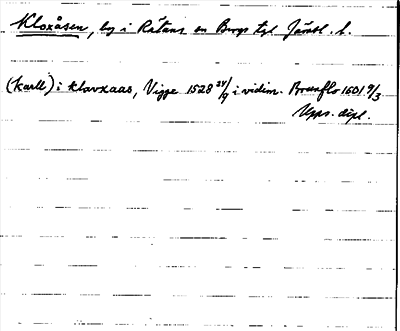 Kloxåsen, by i Rätans sn Bergs tgl Jämtl. l.
(karll) i klavxaas, Vigge 1528 24/9 i vidim. Brunflo 1601 9/3
Upps. dipl.